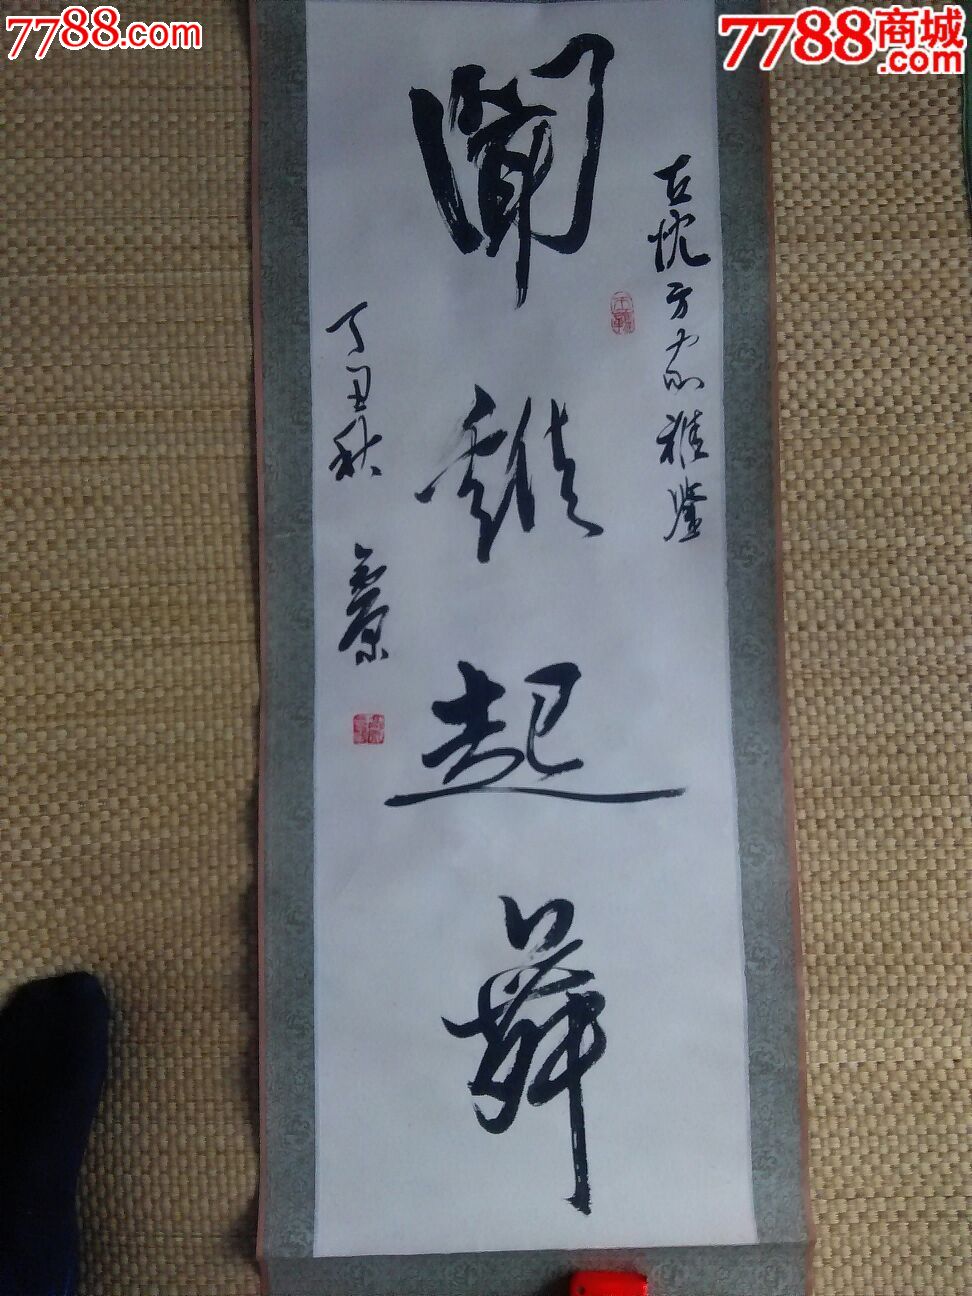 7788.com
7788商城
.com
方家雅鉴
聞鷄起舞
丁丑秋